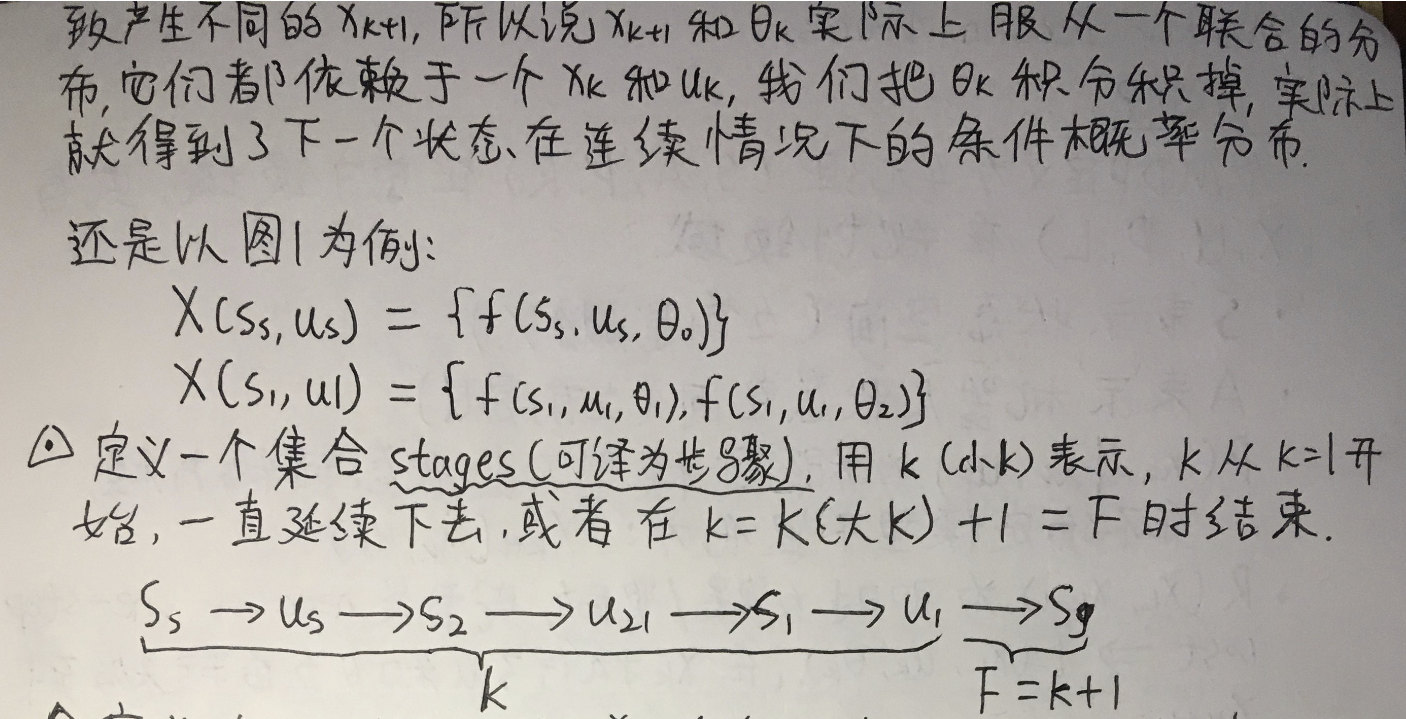 致产生不同的 Xk+1, 所以说 Xk+1 和 θk 实际上 服从一个联合的分
布, 它们都依赖于一个 Xk 和 uk, 我们把 θk 积分积掉, 实际上
就得到了下一个状态在连续情况下的条件概率分布.
还是以图1为例:
X(Ss, us) = {f(Ss, us, θ0)}
X(S1, u1) = {f(S1, u1, θ1), f(S1, u1, θ2)}
定义一个集合 stages(可译为步骤), 用 k (小k) 表示, k 从 k=1 开
始, 一直延续下去, 或者在 k = K(大K) +1 = F 时结束.
Ss → us → S2 → u21 → S1 → u1 → Sg
k F = k+1